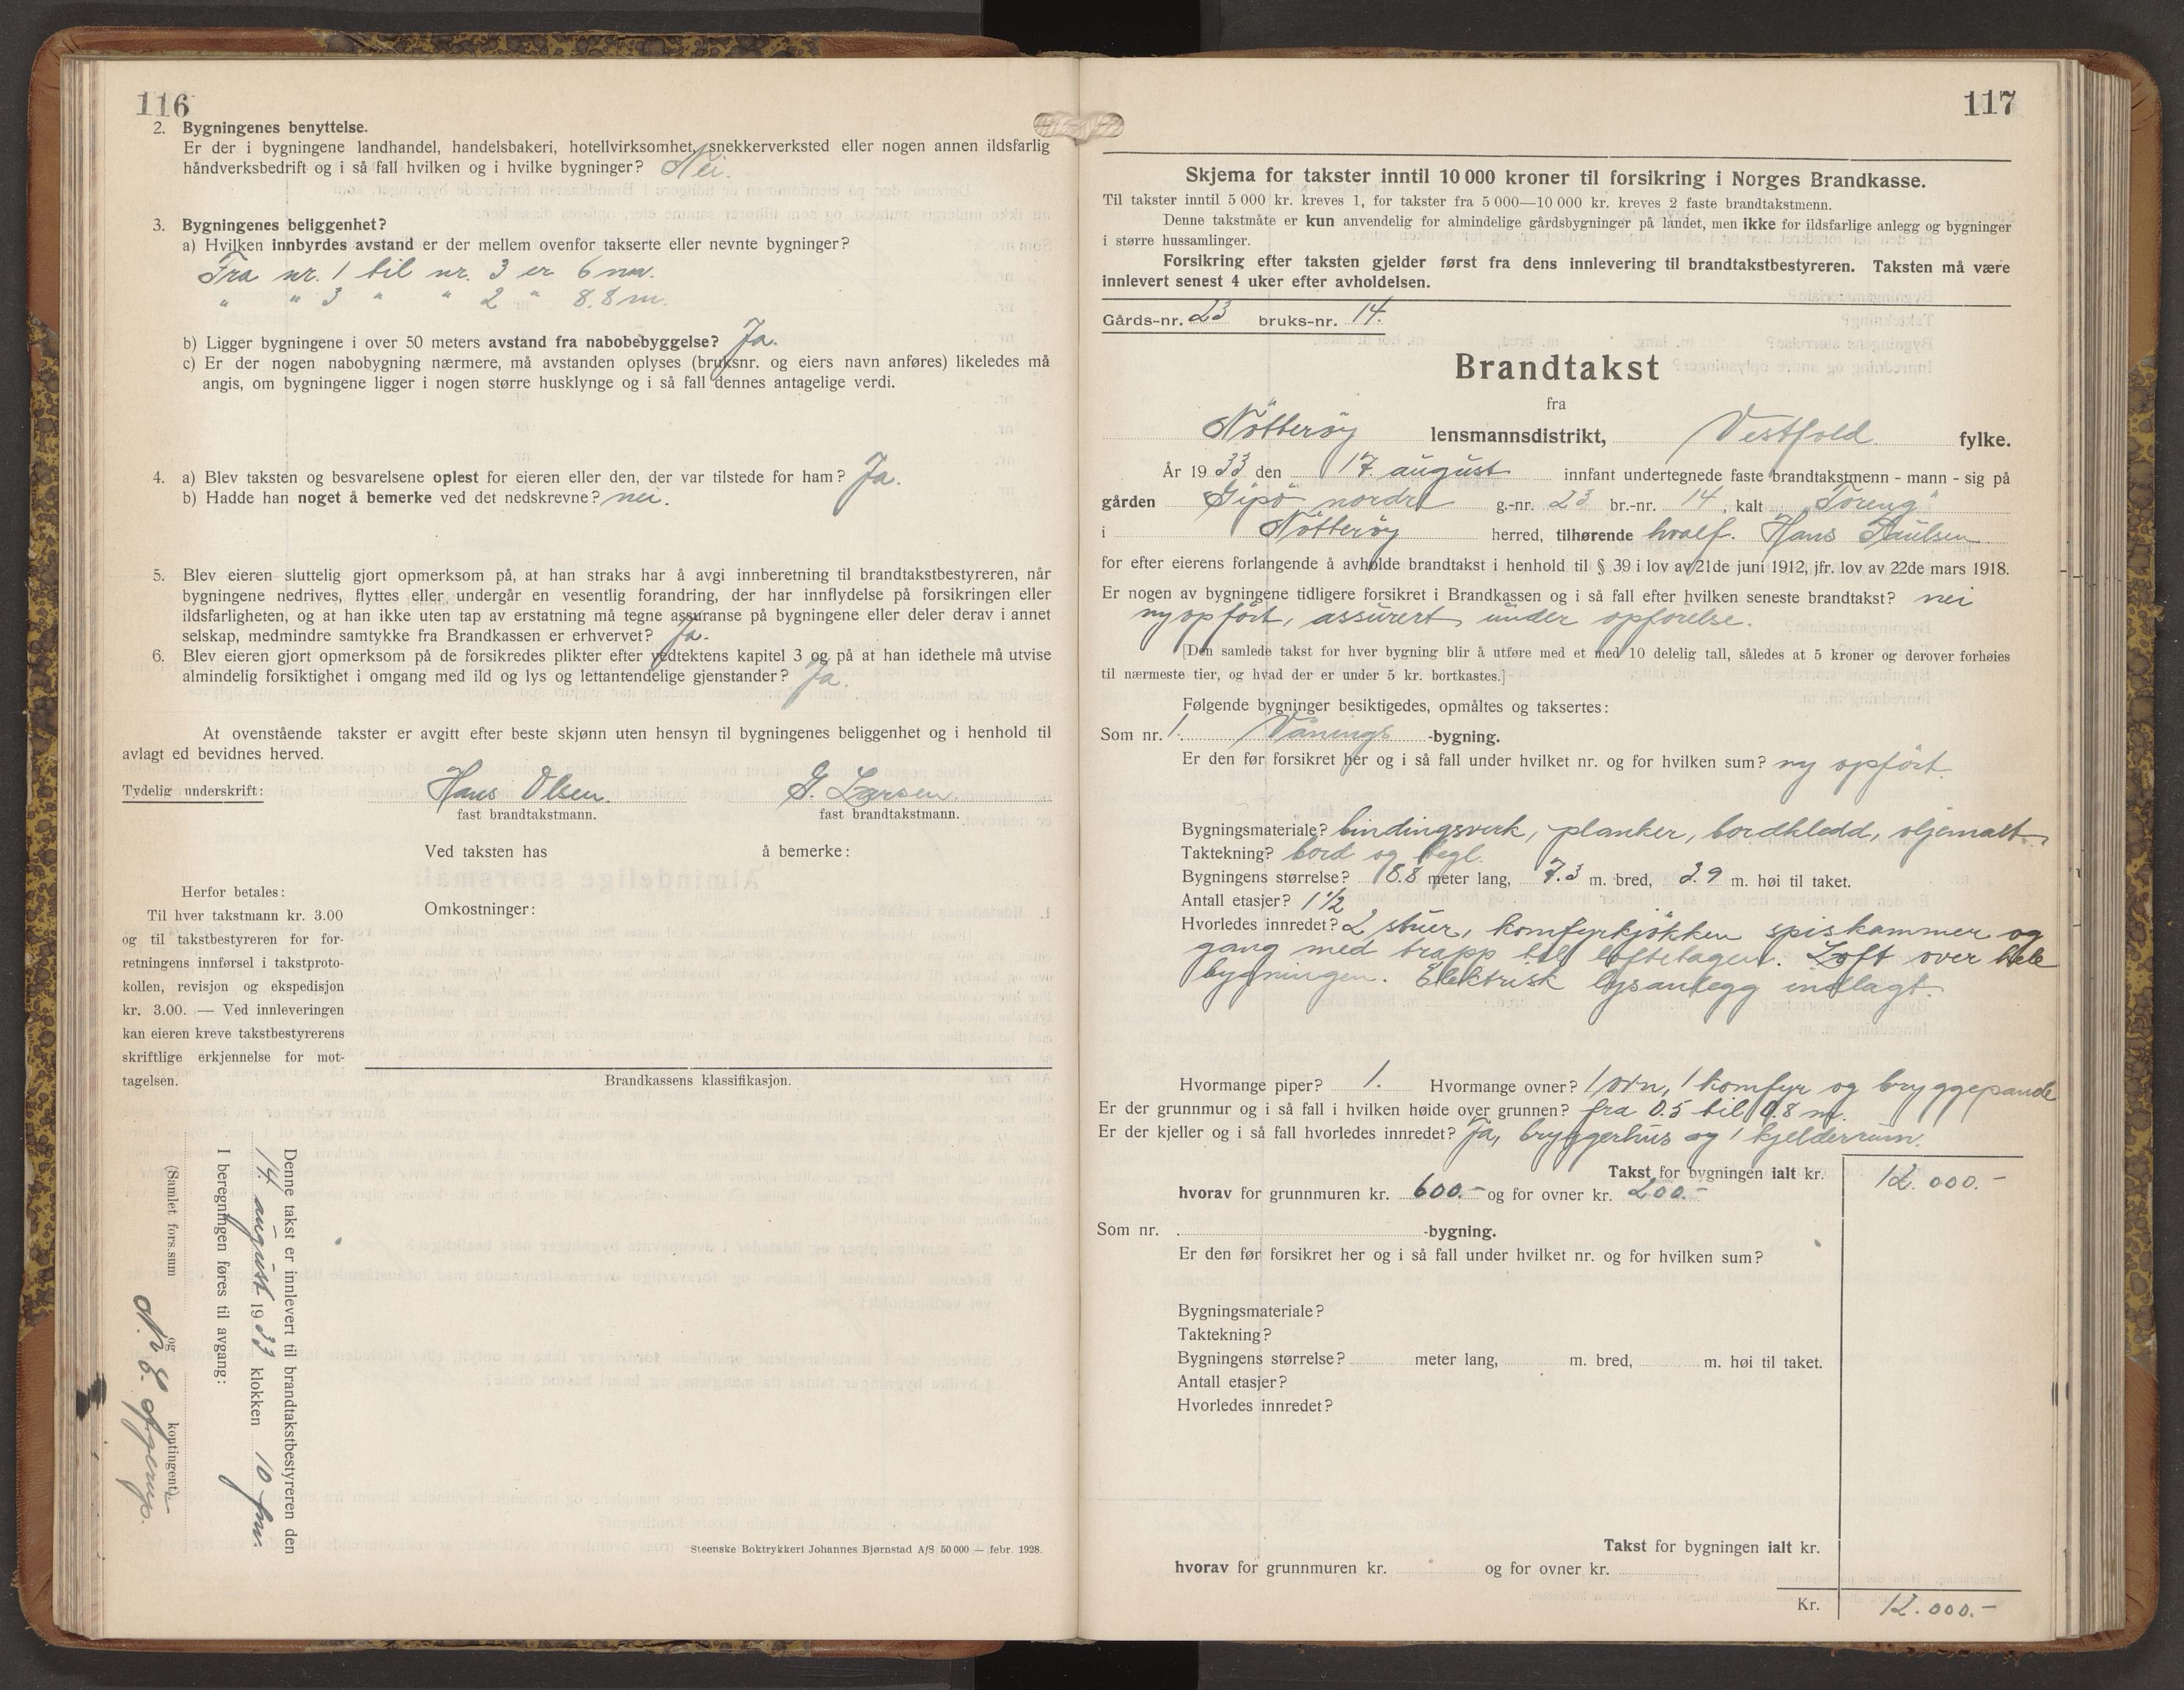 116
2. Bygningenes benyttelse.
Er der i bygningene landhandel, handelsbakeri, hotellvirksomhet, snekkerverksted eller nogen annen ildsfarlig
håndverksbedrift og i så fall hvilken og i hvilke bygninger? Nei.
3. Bygningenes beliggenhet?
a) Hvilken innbyrdes avstand er der mellem ovenfor takserte eller nevnte bygninger?
Fra nr. 1 til nr. 3 er 6 m.
" " 3 " " 2 " 8.8 m.
b) Ligger bygningene i over 50 meters avstand fra nabobebyggelse? Ja.
c) Er der nogen nabobygning nærmere, må avstanden oplyses (bruksnr. og eiers navn anføres) likeledes må
angis, om bygningene ligger i nogen større husklynge og i så fall dennes antagelige verdi.
4. a) Blev taksten og besvarelsene oplest for eieren eller den, der var tilstede for ham? Ja.
b) Hadde han noget å bemerke ved det nedskrevne? nei.
5. Blev eieren sluttelig gjort opmerksom på, at han straks har å avgi innberetning til brandtakstbestyreren, når
bygningene nedrives, flyttes eller undergår en vesentlig forandring, der har innflydelse på forsikringen eller
ildsfarligheten, og at han ikke uten tap av erstatning må tegne assuranse på bygningene eller deler derav i annet
selskap, medmindre samtykke fra Brandkassen er erhvervet? Ja.
6. Blev eieren gjort opmerksom på de forsikredes plikter efter vedtektens kapitel 3 og på at han idethele må utvise
almindelig forsiktighet i omgang med ild og lys og lettantendelige gjenstander? Ja.
At ovenstående takster er avgitt efter beste skjønn uten hensyn til bygningenes beliggenhet og i henhold til
avlagt ed bevidnes herved.
Tydelig underskrift: Hans Olsen. G. Larsen.
fast brandtakstmann. fast brandtakstmann.
Ved taksten has å bemerke:
Omkostninger:
Herfor betales:
Til hver takstmann kr. 3.00
og til takstbestyreren for for-
retningens innførsel i takstproto-
kollen, revisjon og ekspedisjon
kr. 3.00. — Ved innleveringen
kan eieren kreve takstbestyrerens
skriftlige erkjennelse for mot-
tagelsen.
Brandkassens klassifikasjon.
Denne takst er innlevert til brandtakstbestyreren den
14. august 1933 klokken 10 fm.
I beregningen føres til avgang:
(Samlet fors.sum og kontingent).
N. E. Agerup.
Steenske Boktrykkeri Johannes Bjørnstad A/S 50 000 — febr. 1928.
117
Skjema for takster inntil 10 000 kroner til forsikring i Norges Brandkasse.
Til takster inntil 5 000 kr. kreves 1, for takster fra 5 000—10 000 kr. kreves 2 faste brandtakstmenn.
Denne takstmåte er kun anvendelig for almindelige gårdsbygninger på landet, men ikke for ildsfarlige anlegg og bygninger
i større hussamlinger.
Forsikring efter taksten gjelder først fra dens innlevering til brandtakstbestyreren. Taksten må være
innlevert senest 4 uker efter avholdelsen.
Gårds-nr. 23 bruks-nr. 14.
Brandtakst
fra
Nötteröy lensmannsdistrikt, Vestfold fylke.
År 1933 den 17. august innfant undertegnede faste brandtakstmenn - mann - sig på
gården Gipö nordre g.-nr. 23 br.-nr. 14, kalt "Toreng"
i Nötteröy herred, tilhørende hvalf. Hans Paulsen
for efter eierens forlangende å avholde brandtakst i henhold til § 39 i lov av 21de juni 1912, jfr. lov av 22de mars 1918.
Er nogen av bygningene tidligere forsikret i Brandkassen og i så fall efter hvilken seneste brandtakst? nei
nyopfört, assurert under opförelse.
[Den samlede takst for hver bygning blir å utføre med et med 10 delelig tall, således at 5 kroner og derover forhøies
til nærmeste tier, og hvad der er under 5 kr. bortkastes.]
Følgende bygninger besiktigedes, opmåltes og taksertes:
Som nr. 1. Vånings -bygning.
Er den før forsikret her og i så fall under hvilket nr. og for hvilken sum? ny opfört.
Bygningsmateriale? bindingsverk, planker, bordkledd, oljemalt.
Taktekning? bord og tegl.
Bygningens størrelse? 8.8 meter lang, 7.3 m. bred, 3.9 m. høi til taket.
Antall etasjer? 1 1/2
Hvorledes innredet? 2 stuer, komfyrkjökken spiskammer og
gang med trapp til loftetagen. Loft over hele
bygningen. Elektrisk lysanlegg indlagt.
Hvormange piper? 1. Hvormange ovner? 1 ovn, 1 komfyr og bryggepande
Er der grunnmur og i så fall i hvilken høide over grunnen? fra 0.5 til 0.8 m.
Er der kjeller og i så fall hvorledes innredet? Ja, bryggerhus og 1 kjelderrum.
Takst for bygningen ialt kr. 12.000.-
hvorav for grunnmuren kr. 600.- og for ovner kr. 200.-
Som nr. -bygning.
Er den før forsikret her og i så fall under hvilket nr. og for hvilken sum?
Bygningsmateriale?
Taktekning?
Bygningens størrelse? meter lang, m. bred, m. høi til taket.
Antall etasjer?
Hvorledes innredet?
Takst for bygningen ialt kr.
hvorav for grunnmuren kr. og for ovner kr.
Kr. 12.000.-